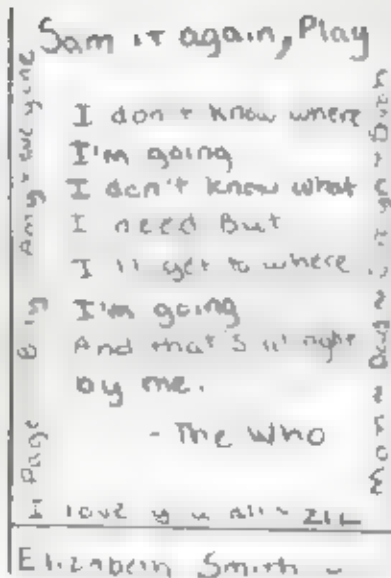 Sam it again, Play
I don't know where
I'm going
I don't know what
I need But
I'll get to where
I'm going
And that's al right
by me.
- The Who
I love you all - ZIL
Elizabeth Smith
Page Bing Amy + everyone
Mom + Dad +